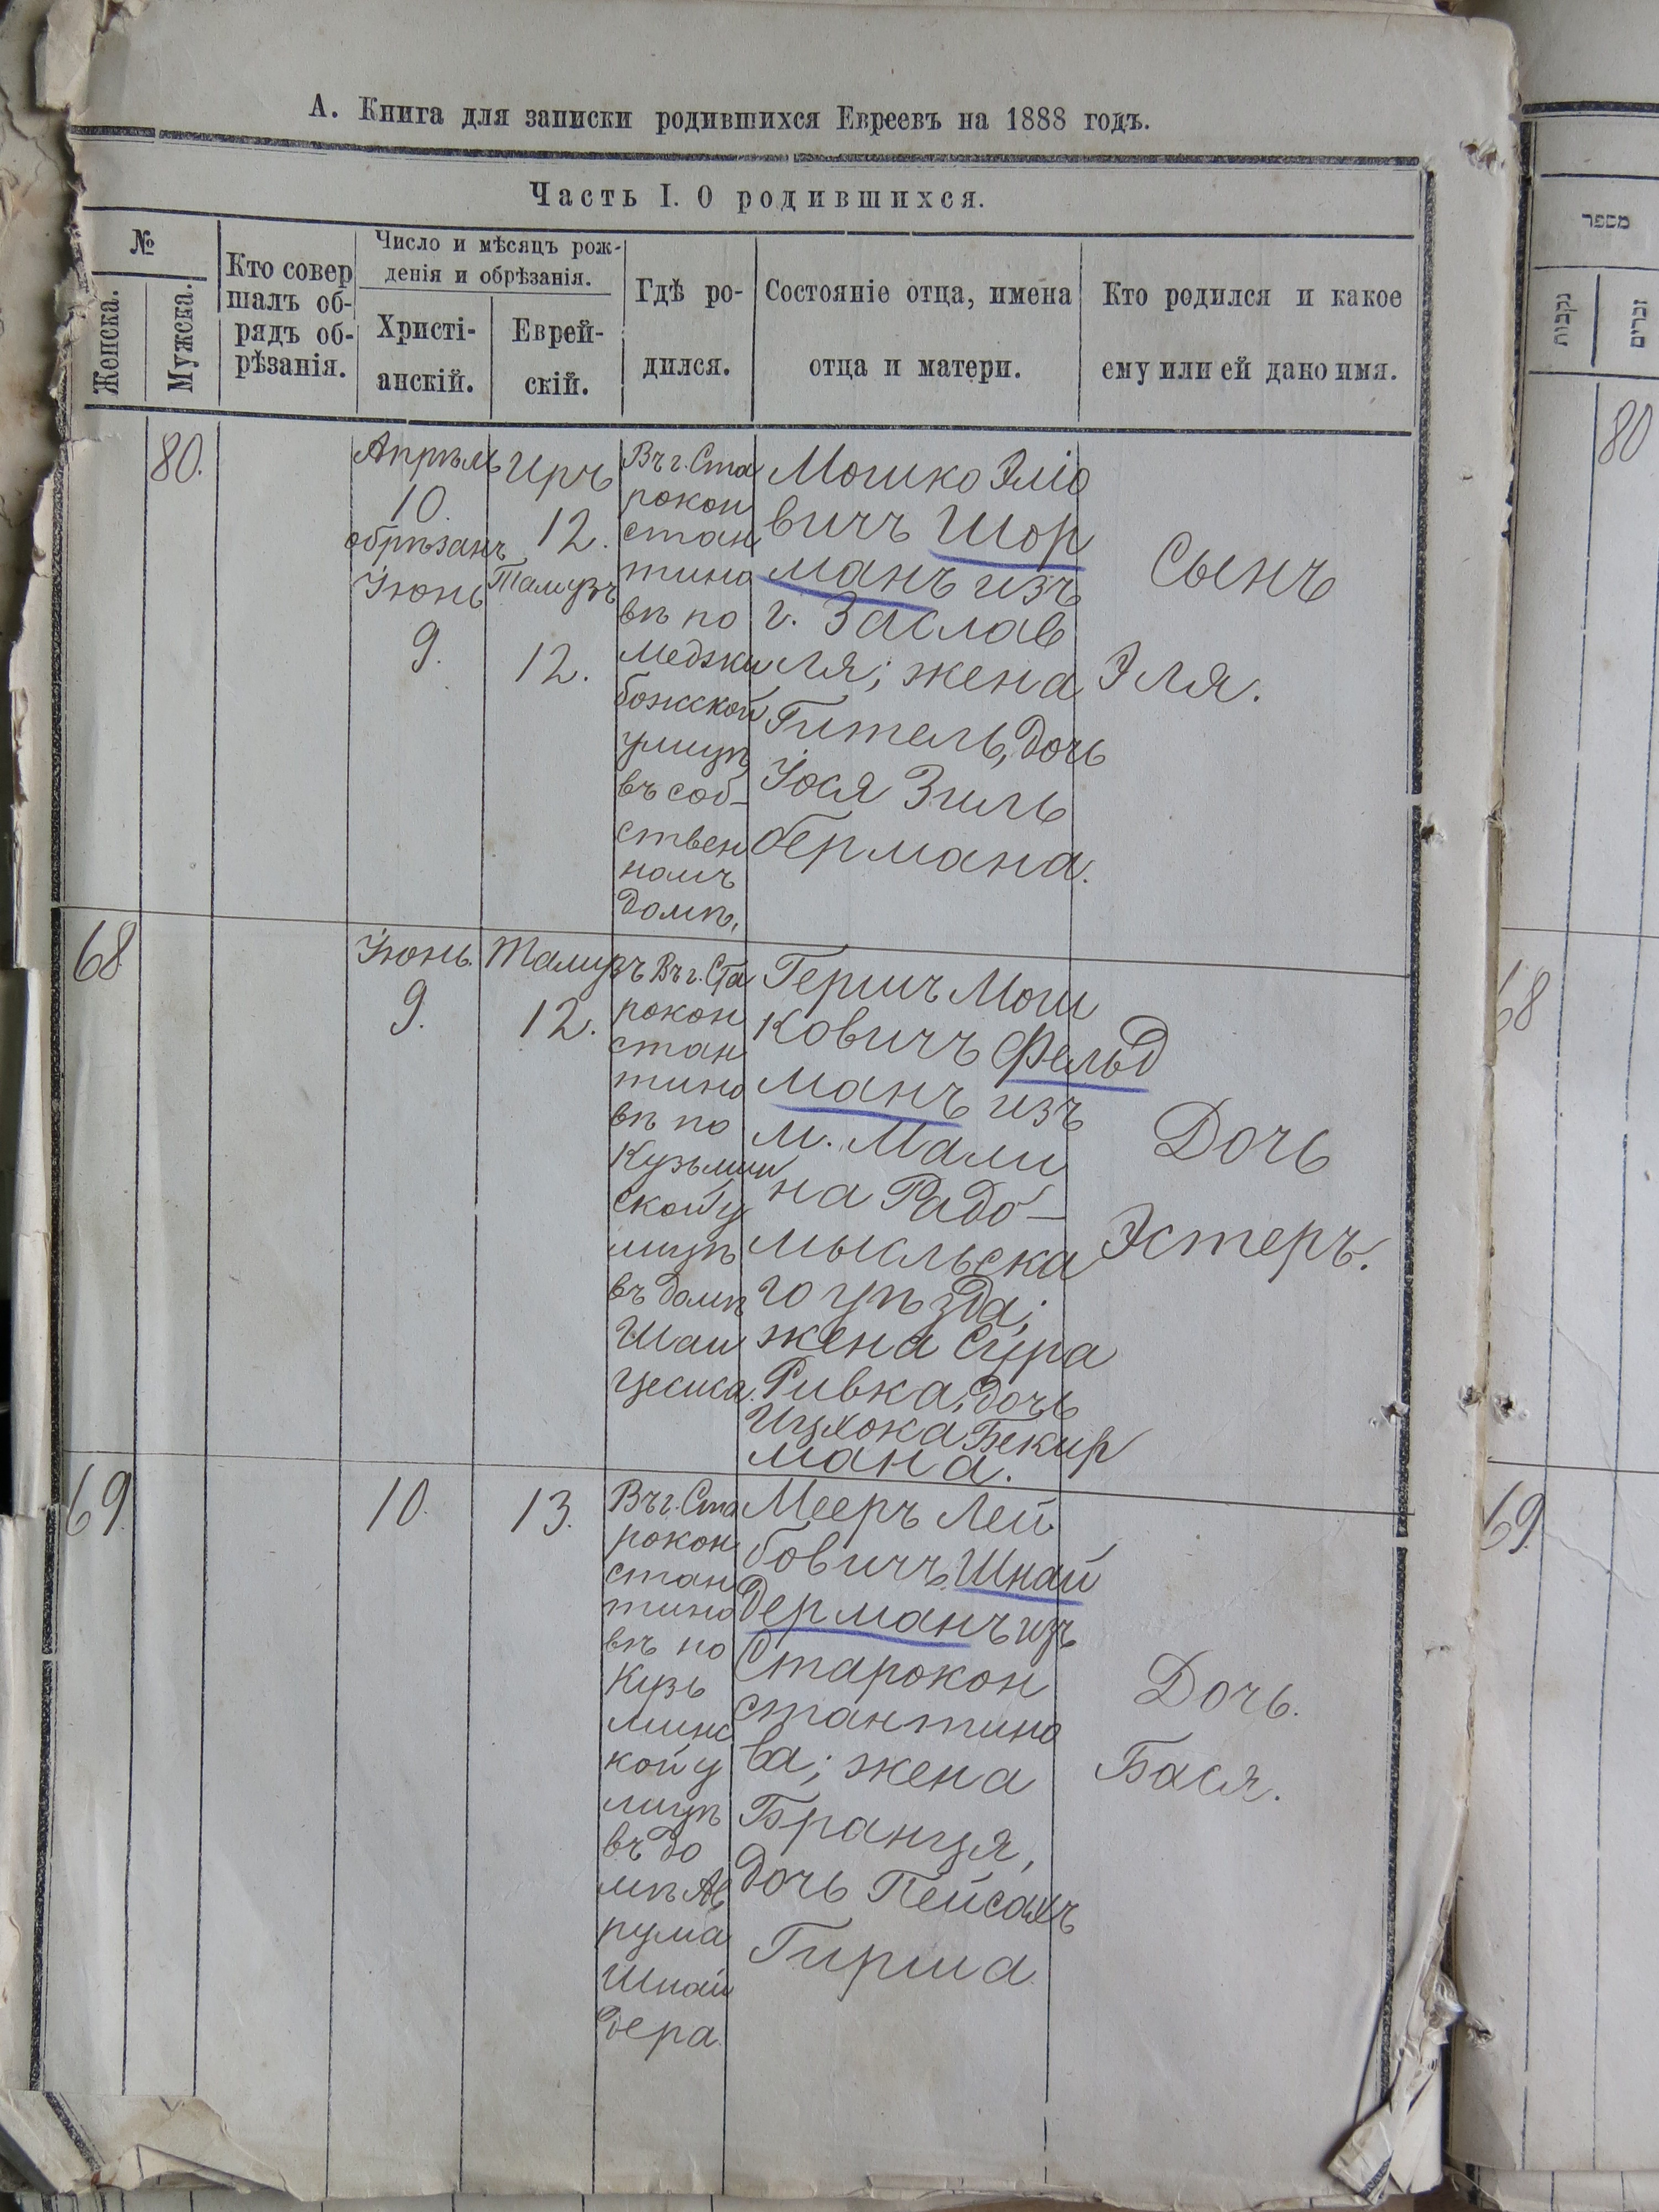 А. Книга для записки родившихся Евреевъ на 1888 годъ.
Часть I. О родившихся.
№
Женска.
Мужска.
Кто совер
шалъ об-
рядъ об-
рѣзанія.
Число и мѣсяцъ рож-
денія и обрѣзанія.
Христі-
анскій.
Еврей-
скій.
Гдѣ ро-
дился.
Состояніе отца, имена
отца и матери.
Кто родился и какое
ему или ей дано имя.
80.
Апрѣль
10.
обрѣзанъ
Іюнь
9.
Иръ
12.
Тамузъ
12.
Въ г. Ста
рокон
стан
тино
вѣ по
Меджи
божской
улицѣ
въ соб-
ствен
номъ
домѣ.
Мошко Эліо
вичъ Шор
манъ изъ
г. Заслав
ля; жена
Гитель, дочь
Іося Зиль
бермана.
Сынъ
Эля.
68
Іюнь.
9.
Тамузъ
12.
Въ г. Ста
рокон
стан
тино
вѣ по
Кузьмин
ской у
лицѣ
въ домѣ
Шаи
Цесиса.
Гершъ Мош
ковичъ Фельд
манъ изъ
м. Мали
на Радо-
мысльска
го уѣзда;
жена Сура
Ривка, дочь
Ицхока Бекир
мана.
Дочь
Эстеръ.
69.
10.
13.
Въ г. Ста
рокон
стан
тино
вѣ по
Кузь
минс
кой у
лицѣ
въ до
мѣ Ав
рума
Шнай
дера.
Мееръ Лей
бовичъ Шнай
дерманъ изъ
Старокон
стантино
ва; жена
Бранця,
дочь Пейсахъ
Гирша
Дочь.
Бася.
מספר
נקבות
זכרים
80
68
69.